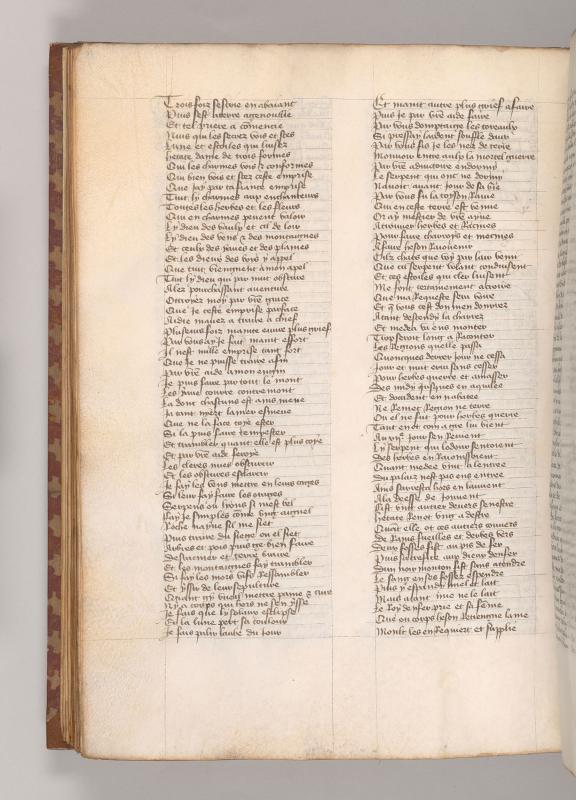 Trois foiz sestoit en abaiant
Puis sest a terre agenoullie
Et tel priere a commencie
Nuis qui les secrez vois et sces
Lune et estoiles qui luisez
hecate dame de trois formes
Qui les charmes vois et conformes
Qui bien vois et scez ceste emprise
Que jay par ta fiance emprise
Tuit ly charmes aux enchanteurs
Toutes les herbes et les fleurs
Qui en charmes peuent valoir
Ly dieu des vaulx et cil de loir
Ly dieu des vens et des montaignes
Et ceulx des yaues et des plaines
Et les dieux des voye y appel
Que tuit viengnent a mon apel
Tuit ly dieu qui par nuit obscure
Alez pourchassant aventure
Ottroyez moy par vre grace
Que je ceste emprise parface
Aidie mavez a traire a chief
Plusieurs foiz mainte euvre plus grief
Par vous ay je fait maint effort
Il nest nulle emprise tant fort
Que je ne puisse traire a fin
Par vre aide a mon engin
Je puis faire par tout le mont
Les yaue courre contremont
La dont chascuns est
Ja tant nyert la mer esmeue
Que ne la face coye ester
Si la puis faire tempester
Et trambler quant elle est plus coye
Et par vre aide feroye
Les cleres nues obscurcir
Et les obscures esclarcir
Je fay les vens mettre en leurs cages
Si leur fay faire les orages
Serpens ou lyons si mest bel
Fay je simples come ung aignel
Roche nayue sil me siet
Puis traire du siege ou el siet
Arbres et bois puis je bien faire
Desraciner et terre braire
Et les montaignes fay trambler
Si fay les mors vifz ressambler
Et yssir de leur sepulture
Quant my vueil mettre paine et cure
Ny a corps qui hors ne sen ysse
Je fais que ly solaux esclipse
Et la lune pert sa coulour
Je fais palir laube du jour
Et maint autre plus grief afaire
Puis je par vre aide faire
Par vous domptay je les toreaulx
Si pressay
Par vous fis je les nez de terre
Mouvoir entre aulx la mortel guerre
Par vre aide endormy
Le serpent qui onc ne dormy
Navoit avant jour de sa vie
Par vous fu la toyson ravie
Qui en ceste terre est venue
Or ay mestier de vre ayue
A trouver herbes et racines
Pour faire charroys et mecines
A faire heson ravenir
Cilz chars que voy par lair venir
Que cil serpent volant conduisent
Et ces estoiles qui cler luisent
Me font certainement acroire
Que ma requeste sera voire
Et que vous cest don men donrrez
Atant descendy la charrez
Et medea va ens monter
Trop seroit long a raconter
Les regions quelle passa
Quoncques derrer jour ne cessa
Jour et nuit erra sans cesser
Pour herbes querre et amasser
Des midy jusques en aquilee
Et doccident en nabatee
Ne remet region ne terre
Ou el ne fut pour herbes querre
Tant en ot com a gre lui vient
Au jour sen revient
Ly serpent qui lodour sentoient
Des herbes en rajonissoient
Quant medee vint a lentree
Du palaiz nest pas ens entree
Ains sarresta hors en lauvent
A la deesse de jouvent
Fist ung autier devers senestre
Hecate benot ung a destre
Quant elle ot ces autiers couvers
De rains fueilles et derbes vers
Deux fosses fist au pis de fer
Puis sacrefie aux dieux denfer
Dun noir mouton fist sans atendre
Le sang en ses fosses espendre
Puis y espandy miel et lait
Mais atant mie ne le lait
Le roy denfer prie et sa feme
Que ou corps heson retiengne lame
Moult les en requiert et supplie